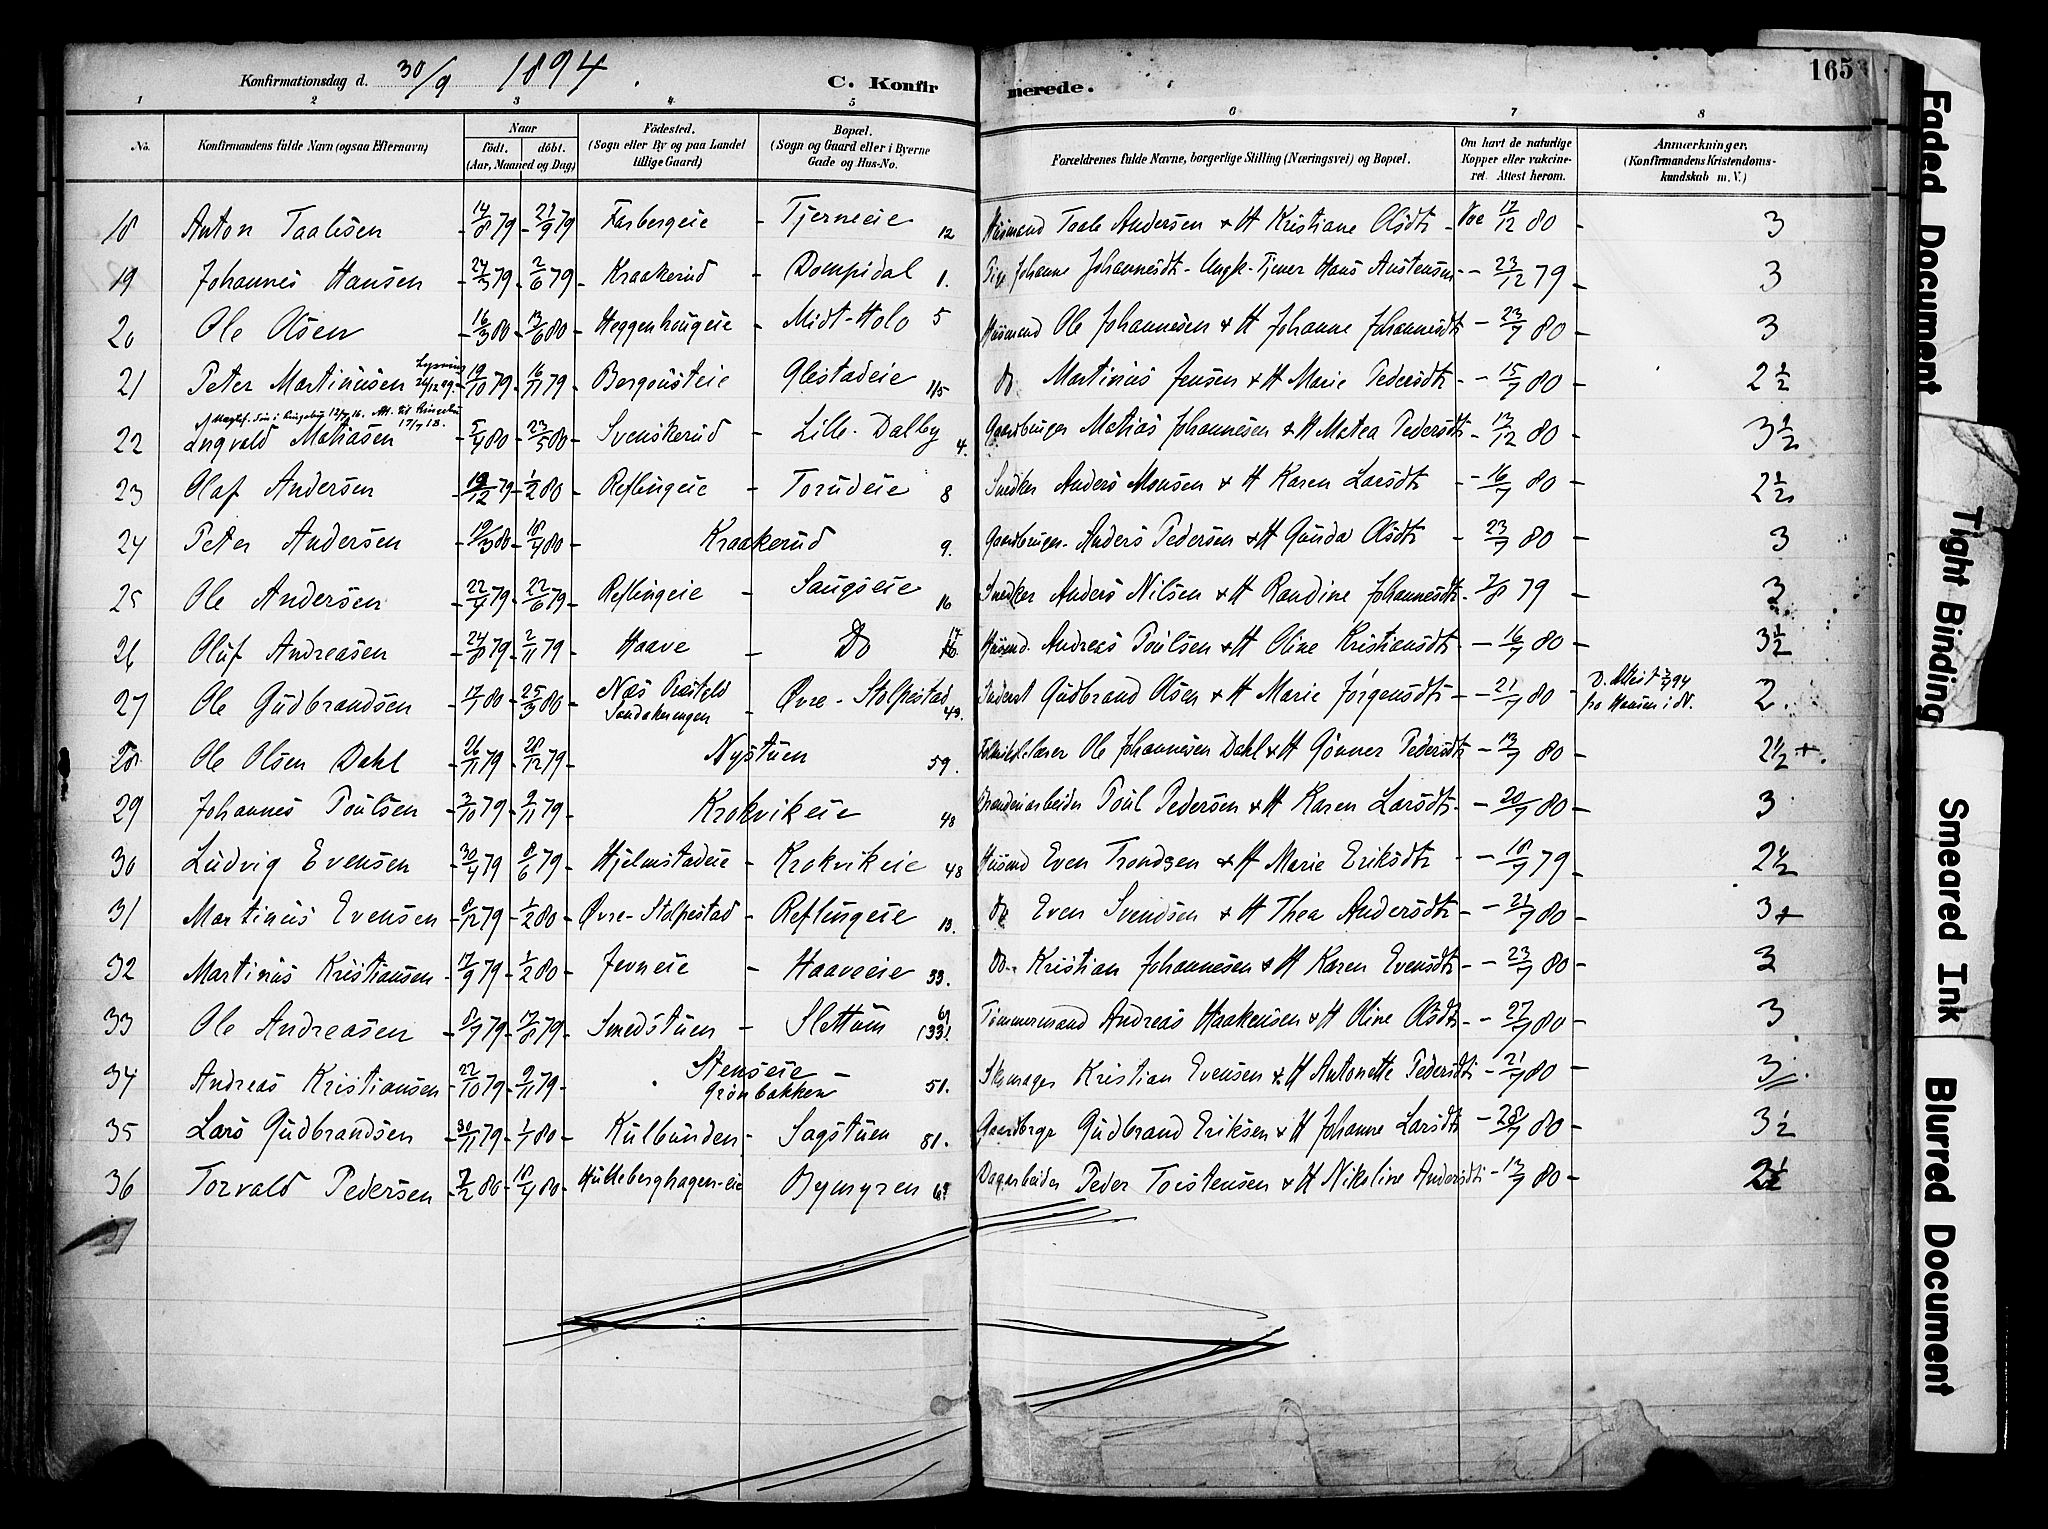 Konfirmationsdag d. 30/9 1894. C. Konfirmerede. 165
1 2 3 4 5 6 7 8
No. Konfirmandens fulde Navn (ogsaa Efternavn) Naar født. døbt. (Aar, Maaned og Dag) Fødested. (Sogn eller By og paa Landet tillige Gaard) Bopæl. (Sogn og Gaard eller i Byerne Gade og Hus-No. Forældrenes fulde Navne, borgerlige Stilling (Næringsvei) og Bopæl. Om havt de naturlige Kopper eller vakcineret. Attest herom. Anmærkninger. (Konfirmandens Kristendomskundskab m. V.)
18 Anton Taalesen 14/8 79 21/9 79 Farbergeie - Tjerneeie 12 Husmand Taale Andersen & H Kristiane Olsdtr - Vac 17/12 80 - 3
19 Johannes Hansen 24/3 79 2/6 79 Kraakerud - Dompidal 1. Pige Johanne Johannesdtr - Ungk. Tjener Hans Austensen - 23/12 79 - 3
20 Ole Olsen 16/3 80 13/6 80 Heggenhougeie - Midt-Holo 5 Husmand Ole Johannesen & H Johanne Johannesdtr - 23/7 80 - 3
21 Peter Martinusen 19/10 79 16/11 79 Bergousteie Glestadeie 115 Do Martinus Jensen & H Marie Pedersdtr - 15/7 80 - 2 1/2
22 Ingvald Matiasen 5/4 80 23/5 80 Svenskerud - Lille-Dalby 4. Gaardbruger Matias Johannesen & H Matea Pedersdtr - 13/12 80 - 3 1/2
23 Olaf Andersen 19/12 79 1/2 80 Reflingeie - Torudeie 8 Snedker Anders Monsen & H Karen Larsdtr - 16/7 80 - 2 1/2
24 Peter Andersen 19/3 80 18/4 80 Kraakerud 9. Gaardbruger Anders Pedersen & H Gunda Olsdtr - 23/7 80 - 3
25 Ole Andersen 22/4 79 22/6 79 Reflingeie - Saugseie 16 Snedker Anders Nilsen & H Randine Johannesdtr - 7/8 79 - 3
26 Oluf Andreasen 24/8 79 2/11 79 Haave - Do 17 Husmd. Andreas Poulsen & H Oline Kristiansdtr - 16/7 80 - 3 1/2
27 Ole Gudbrandsen 17/1 80 25/3 80 Næs Præsteld Sandakerengen - Øvre-Stolpestad 49. Inderst Gudbrand Olsen & H Marie Jørgensdtr - 21/7 80 - D. Attest 94 fra Hansen i N. 2.
28 Ole Olsen Dahl 26/11 79 28/12 79 Nystuen 59. Ole Johannesen Dahl & H Gunner Pedersdtr - 13/7 80 - 2 1/2 +.
29 Johannes Poulsen 3/10 79 9/11 79 Krokvikeie 48 Brænderiarbeider Poul Pedersen & H Karen Larsdtr - 20/7 80 - 3
30 Ludvig Evensen 30/4 79 8/6 79 Hjelmstadeie - Krokvikeie 48 Husmd Even Trondsen & H Marie Eriksdtr - 18/7 79 - 2 1/2
31 Martinus Evensen 8/12 79 1/2 80 Øvre-Stolpestad - Reflingeie 13. Do Even Svendsen & H Thea Andersdtr - 21/7 80 - 3+
32 Martinus Kristiansen 17/9 79 1/2 80 Jevneeie - Haaveeie 33. Do. Kristian Johannesen & H Karen Evensdtr - 23/7 80 - 3
33 Ole Andreasen 8/7 79 17/8 79 Smedstuen - Slettum 61 (33) Tømmermand Andreas Haakensen & H Oline Olsdtr - 27/7 80 - 3
34 Andreas Kristiansen 22/10 79 9/11 79 Stenseie - Grønbakken 51. Skomager Kristian Evensen & H Antonette Pedersdtr - 21/7 80 - 3
35 Lars Gudbrandsen 30/11 79 1/1 80 Kulbunden - Sagstuen 81. Gaardbrger Gudbrand Eriksen & H Johanne Larsdtr - 28/7 80 - 3 1/2
36 Torvald Pedersen 7/2 80 18/4 80 Hulleberghagen-eie Bymyren Dagarbeider Peder Torstensen & H Nikoline Andersdtr - 13/7 80 - 2 1/2
Faded Document
Tight Binding
Smeared Ink
Blurred Document